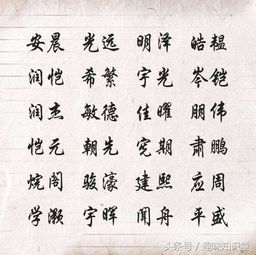 安晨 光远 明泽 皓韫
润恺 希繁 宇光 岑铠
润杰 敏德 佳曜 朋伟
恺元 朝先 宪期 肃鹏
烷阁 骏濠 建熙 应周
学灏 宇晖 闻舟 平盛
头条号 / 趣味知识堂